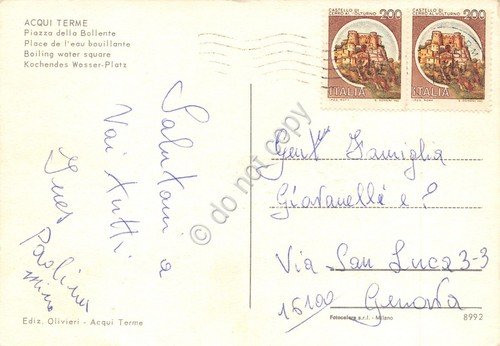 ACQUI TERME
Piazza della Bollente
Place de l'eau bouillante
Boiling water square
Kochendes Wasser-Platz
CASTELLO DI
CERRO AL VOLTURNO
200
ITALIA
CASTELLO DI
CERRO AL VOLTURNO
200
ITALIA
Saluti a
Voi tutti
Ines
Paolina
Mino
do not copy
Gent.me Famiglia
Giovanelli e
Via San Luca 3-3
16100 Genova
Ediz. Olivieri - Acqui Terme
Fotocelere s.r.l. - Milano
8992